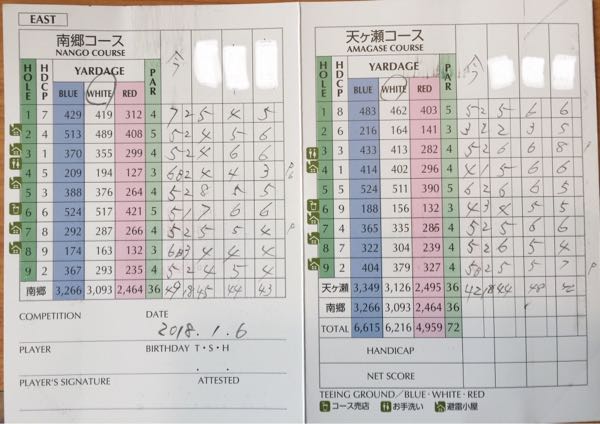 EAST
南郷コース
NANGO COURSE
今
HOLE HDCP YARDAGE PAR
BLUE WHITE RED
1 7 429 419 312 4 7 2 5 4 5
2 4 513 489 408 5 5 2 4 5 6
3 1 370 355 299 4 5 2 4 6 6
4 5 209 194 127 3 2 4 4 3
5 3 388 376 264 4 5 2 8 5 5
6 6 524 517 421 5 5 1 7 6 6
7 8 292 287 266 4 5 2 5 5 4
8 9 174 163 132 3 4 4 4
9 2 367 293 235 4 5 2 4 5 4
南郷 3,266 3,093 2,464 36 49 18 45 44 43
COMPETITION DATE
2018. 1. 6
PLAYER BIRTHDAY T・S・H
PLAYER'S SIGNATURE ATTESTED
天ヶ瀬コース
AMAGASE COURSE
今
HOLE HDCP YARDAGE PAR
BLUE WHITE RED
1 8 483 462 403 5 5 2 5 6 6
2 6 216 164 141 3 3 2 2 3 5
3 3 433 413 282 4 5 2 6 6 8
4 1 414 402 296 4 4 1 5 6 6
5 7 524 511 390 5 6 2 6 6 5
6 9 188 156 132 3 4 3 5 5
7 4 365 335 286 4 5 2 5 6 6
8 7 322 304 239 4 5 2 6 5 4
9 2 404 379 327 4 5 2 5 5 7
天ヶ瀬 3,349 3,126 2,495 36 42 18 44 48
南郷 3,266 3,093 2,464 36
TOTAL 6,615 6,216 4,959 72
HANDICAP
NET SCORE
TEEING GROUND/BLUE・WHITE・RED
コース売店 お手洗い 避雷小屋